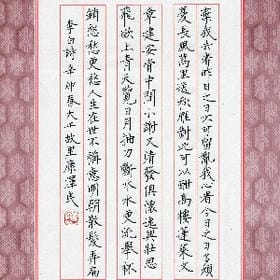 棄我去者昨日之日不可留亂我心者今日之日多煩
憂長風萬里送秋雁對此可以酣高樓蓬萊文
章建安骨中間小謝又清發俱懷逸興壯思
飛欲上青天覽日月抽刀斷水水更流舉杯
銷愁愁更愁人生在世不稱意明朝散髮弄扁
李白詩辛卯春大止故里澤民